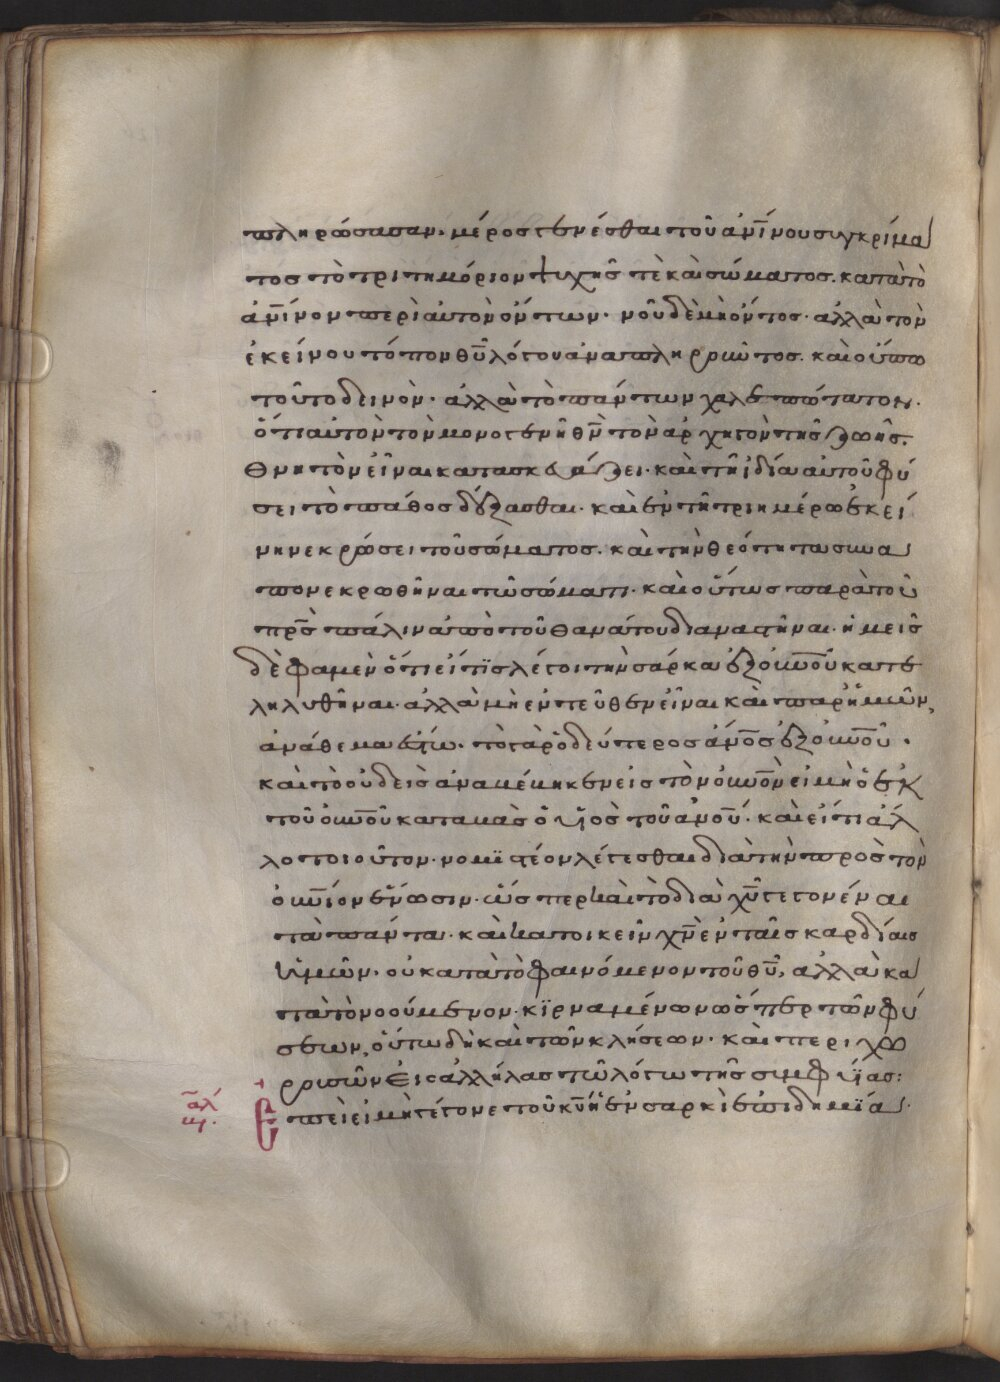 πληρώσασαν· μέρος γενέσθαι τοῦ ἀνίνου συγκρίμα
τος τὸ τριτημόριον ψυχῆς τὲ καὶ σώματος. κατὰ τὸ
ἀνίνον περὶ αὐτὸν ὄντων· νοῦ δὲ μὴ ὄντος· ἀλλὰ τὸν
ἐκείνου τόπον θῦ λόγου ἀναπληροῦντος. καὶ οὔπω
τοῦτο δεινὸν· ἀλλὰ τὸ πάντων χαλεπώτατον.
ὅτι αὐτὸν τὸν μονογενῆ θν τὸν ἀρχηγὸν τῆς ζωῆς.
θνητὸν εἶναι κατασκευάζει· καὶ τῆ ἰδία αὐτοῦ φύ
σει τὸ πάθος δέξασθαι· καὶ ἐν τῆ τριημέρω ἐκεί
νη νεκρώσει τοῦ σώματος. καὶ τὴν θεότητα συνα
πονεκρωθῆναι τῶ σώματι· καὶ οὕτως παρὰ τοῦ
πρς πάλιν ἀπὸ τοῦ θανάτου διαναστῆναι. ἡμεῖς
δὲ φαμὲν ὅτι εἴ τις λέγοι τὴν σάρκα ἐξ οὐνοῦ κατε
ληλυθῆναι· ἀλλὰ μὴ ἐντεῦθεν εἶναι καὶ παρ' ἡμῶν,
ἀνάθεμα ἔστω. τὸ γὰρ ὁ δεύτερος ἄνος ἐξ οὐνοῦ.
καὶ τὸ οὐδεὶς ἀναβέβηκεν εἰς τὸν οὐνὸν εἰ μὴ ὁ ἐκ
τοῦ οὐνοῦ καταβὰς ὁ υἱὸς τοῦ ἀνοῦ. καὶ εἴ τι ἄλ
λο τοιοῦτον· νομιστέον λέγεσθαι διὰ τὴν πρὸς τὸν
οὐνιον ἕνωσιν. ὥσπερ καὶ τὸ διὰ χῦ γεγονέναι
τὰ πάντα· καὶ κατοικεῖν χν ἐν ταῖς καρδίαις
ὑμῶν· οὐ κατὰ τὸ φαινόμενον τοῦ θῦ, ἀλλὰ κα
τὰ τὸ νοούμενον· κιρναμένων ὥσπερ τῶν φύ
σεων, οὕτω δὴ καὶ τῶν κλήσεων· καὶ περιχω
ρουσῶν εἰς ἀλλήλας τῶ λόγω τῆς συμφυΐας:
ἐπεὶ εἰ μὴ γέγονε τοῦ κυ ἡ ἐν σαρκὶ ἐπιδημία